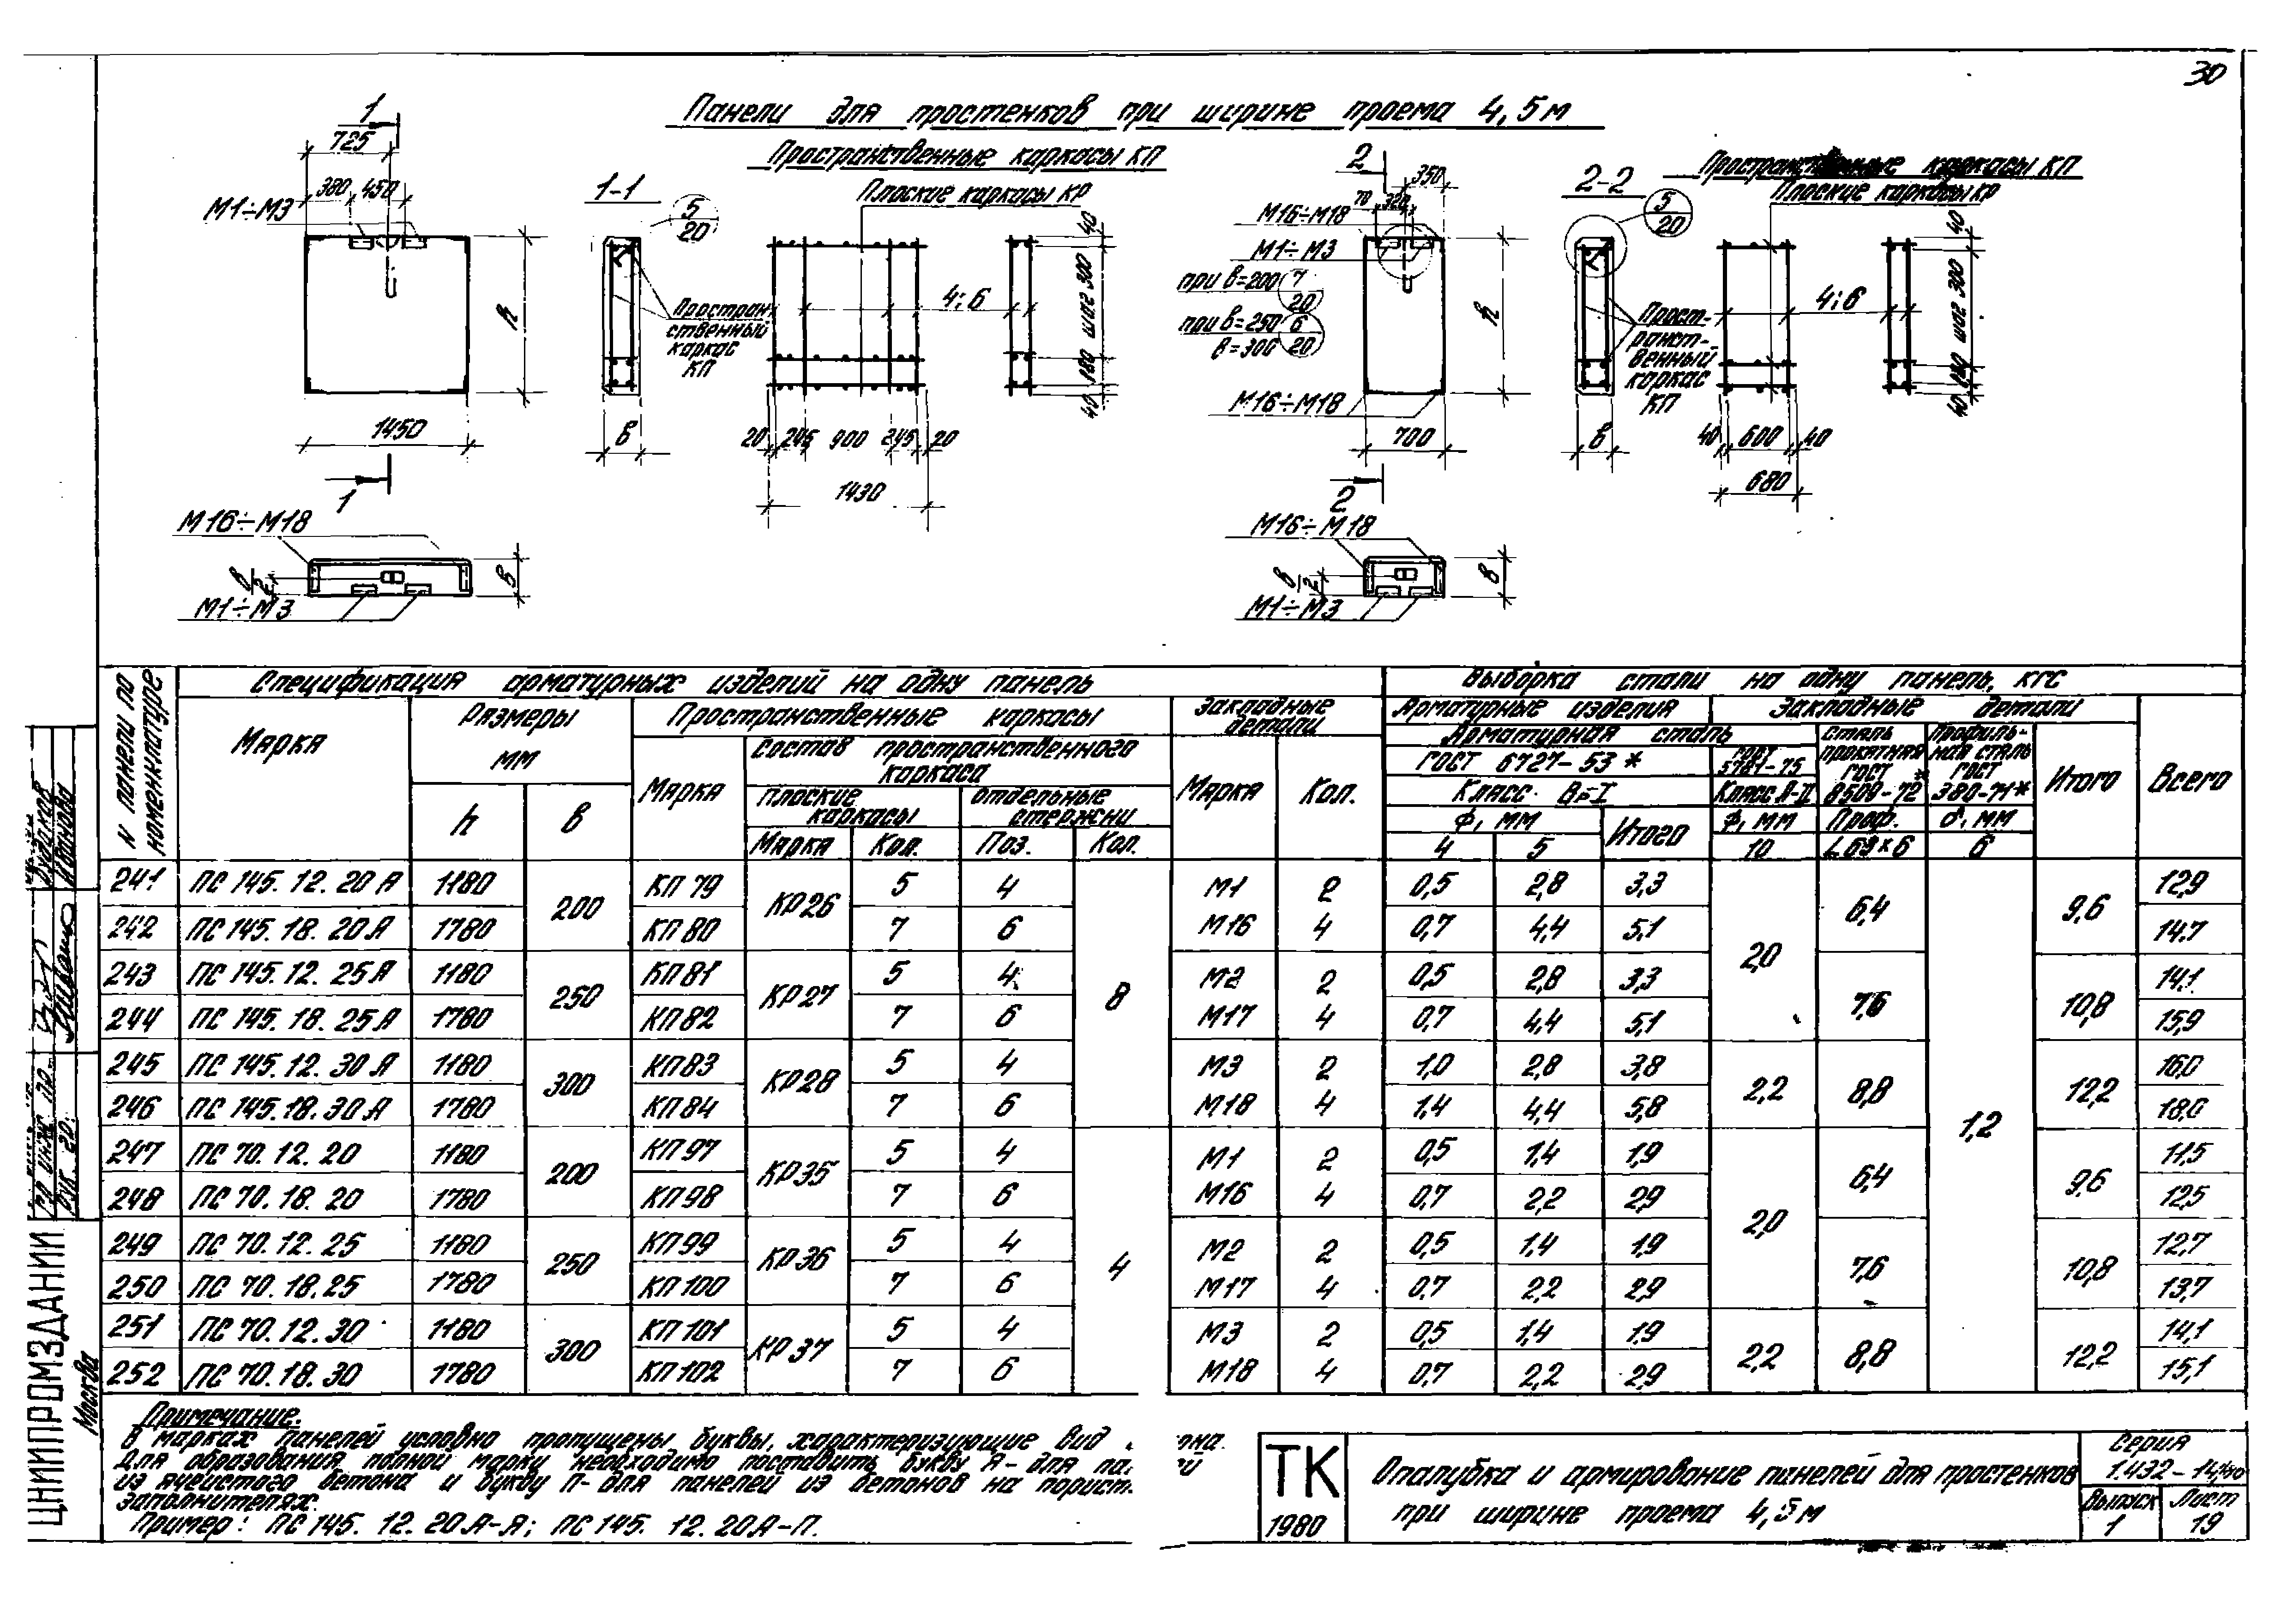 30
Панели для простенков при ширине проема 4,5м
Пространственные каркасы КП
Плоские каркасы КР
1
725
380 450
М1÷М3
h
1450
1
М16÷М18
в/2
в
М1÷М3
1-1
5
20
Простран-
ственный
каркас
КП
в
4;6
40
шаг 300
180
40
20 245 900 245 20
1430
2
350
70 320
М16÷М18
М1÷М3
при в=200 7
20
при в=250 6
в=300 20
М16÷М18
h
700
2
М16÷М18
в/2
в
М1÷М3
2-2
5
20
Прост-
ранст-
венный
каркас
КП
в
Пространственные каркасы КП
Плоские каркасы КР
4;6
40
шаг 300
180
40
40 600 40
680
N панели по номенклатуре
Спецификация арматурных изделий на одну панель
Выборка стали на одну панель, кгс
Марка
Размеры мм
Пространственные каркасы
Закладные детали
Арматурные изделия
Закладные детали
Всего
h в
Марка
Состав пространственного каркаса
Марка Кол.
Арматурная сталь
Сталь прокатная ГОСТ 8509-72*
Профиль-ная сталь ГОСТ 380-71*
Итого
ГОСТ 6727-53*
ГОСТ 5781-75
Плоские каркасы
Отдельные стержни
Класс Вр-I
Класс А-II
Ф, мм Итого Ф, мм Проф. б, мм
Марка Кол. Поз. Кол.
4 5 10 L63×6 6
241 ПС 145.12.20А 1180 200 КП 79 КР26 5 4 8 М1 2 0,5 2,8 3,3 2,0 6,4 1,2 9,6 12,9
242 ПС 145.18.20А 1780 КП 80 7 6 М16 4 0,7 4,4 5,1 14,7
243 ПС 145.12.25А 1180 250 КП 81 КР27 5 4 М2 2 0,5 2,8 3,3 7,6 10,8 14,1
244 ПС 145.18.25А 1780 КП 82 7 6 М17 4 0,7 4,4 5,1 15,9
245 ПС 145.12.30А 1180 300 КП 83 КР28 5 4 М3 2 1,0 2,8 3,8 2,2 8,8 12,2 16,0
246 ПС 145.18.30А 1780 КП 84 7 6 М18 4 1,4 4,4 5,8 18,0
247 ПС 70.12.20 1180 200 КП 97 КР35 5 4 4 М1 2 0,5 1,4 1,9 2,0 6,4 9,6 11,5
248 ПС 70.18.20 1780 КП 98 7 6 М16 4 0,7 2,2 2,9 12,5
249 ПС 70.12.25 1180 250 КП 99 КР36 5 4 М2 2 0,5 1,4 1,9 7,6 10,8 12,7
250 ПС 70.18.25 1780 КП 100 7 6 М17 4 0,7 2,2 2,9 13,7
251 ПС 70.12.30 1180 300 КП 101 КР37 5 4 М3 2 0,5 1,4 1,9 2,2 8,8 12,2 14,1
252 ПС 70.18.30 1780 КП 102 7 6 М18 4 0,7 2,2 2,9 15,1
Примечание.
В марках панелей условно пропущены буквы, характеризующие вид
Для образования полной марки необходимо поставить букву Я-для
из ячеистого бетона и букву П-для панелей из бетонов на
заполнителях.
Пример: ПС 145.12.20А-Я; ПС 145.12.20А-П.
ТК
1980
Опалубка и армирование панелей для простенков
при ширине проема 4,5м
Серия
Выпуск
1
Лист
19
ЦНИИПРОМЗДАНИЙ
Москва